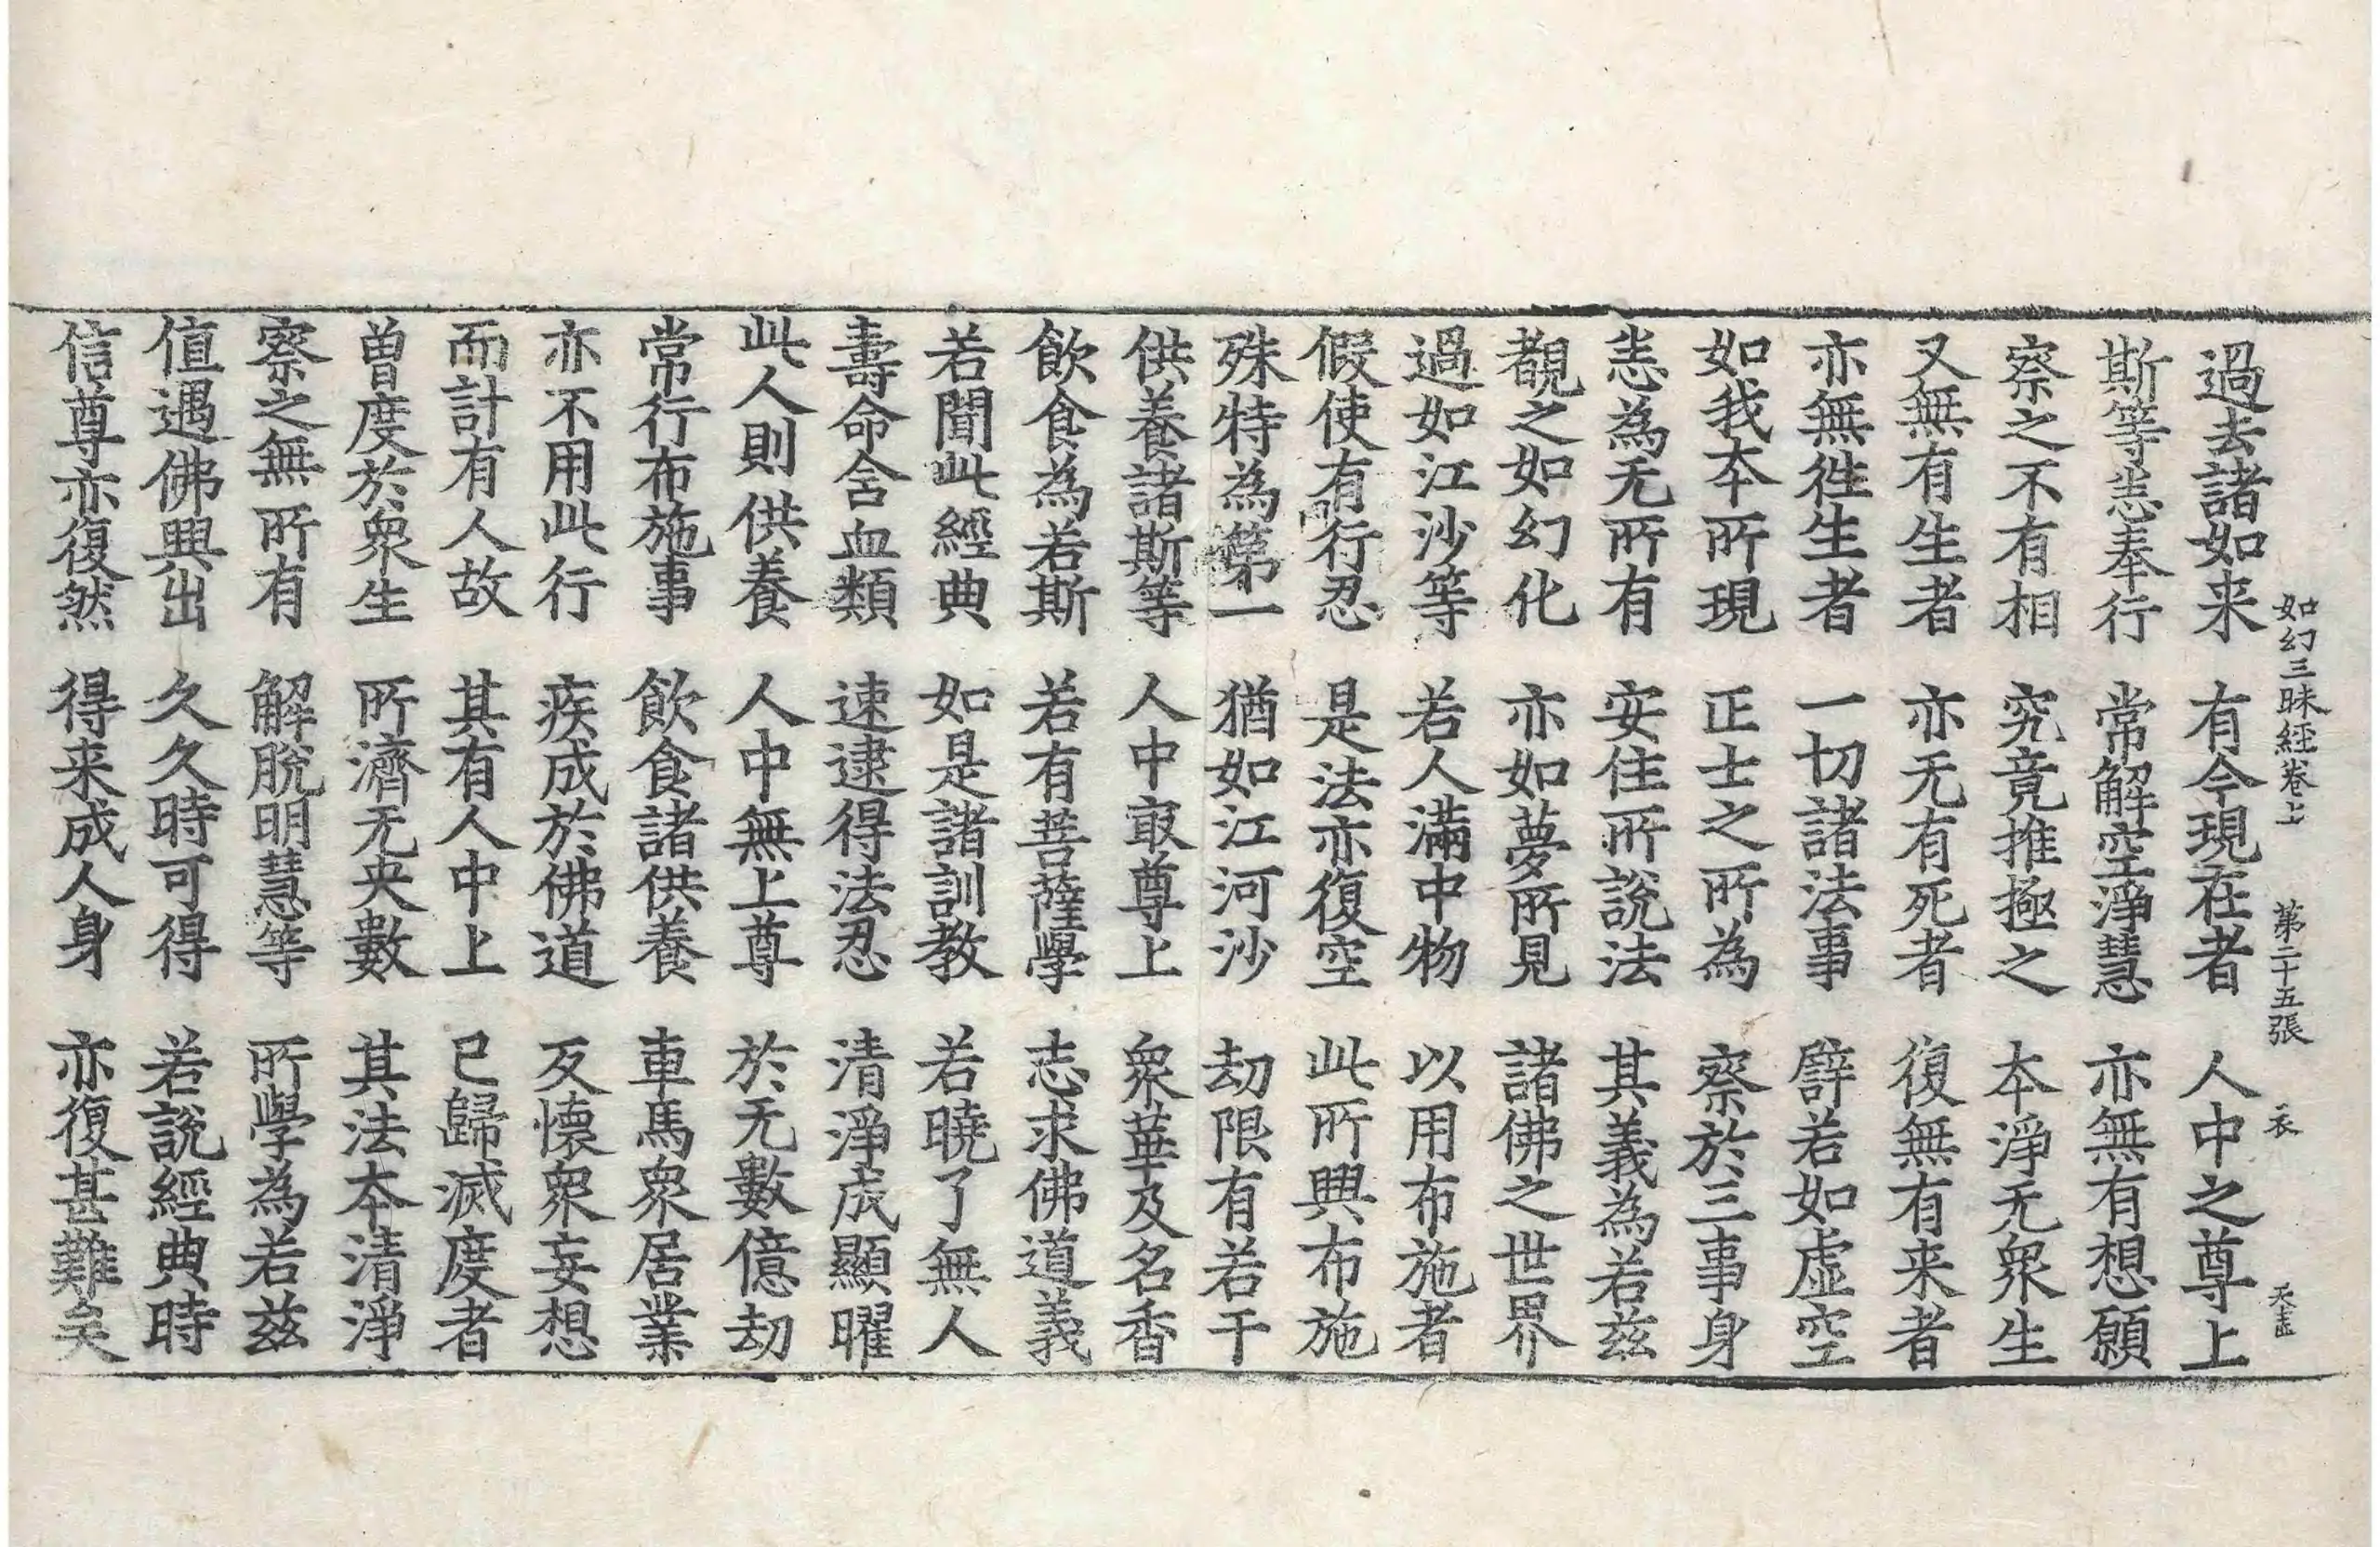 如幻三昧經卷上 第二十五張 衣
過去諸如来 有今現在者 人中之尊上
斯等悉奉行 常解空淨慧 亦無有想願
察之不有相 究竟推極之 本淨无衆生
又無有生者 亦无有死者 復無有来者
亦無往生者 一切諸法事 譬若如虛空
如我本所現 正士之所為 察於三事身
悉為无所有 安住所說法 其義為若茲
觀之如幻化 亦如夢所見 諸佛之世界
過如江沙等 若人滿中物 以用布施者
假使有行忍 是法亦復空 此所興布施
殊特為第一 猶如江河沙 劫限有若干
供養諸斯等 人中㝡尊上 衆華及名香
飲食為若斯 若有菩薩學 志求佛道義
若聞此經典 如是諸訓教 若曉了無人
壽命含血類 速逮得法忍 清淨成顯曜
此人則供養 人中無上尊 於无數億劫
常行布施事 飲食諸供養 車馬衆居業
亦不用此行 疾成於佛道 及懷衆妄想
而計有人故 其有人中上 已歸滅度者
曽度於衆生 所濟无央數 其法本清淨
察之無所有 解脫明慧等 所學為若茲
值遇佛興出 久久時可得 若說經典時
信尊亦復然 得来成人身 亦復甚難矣